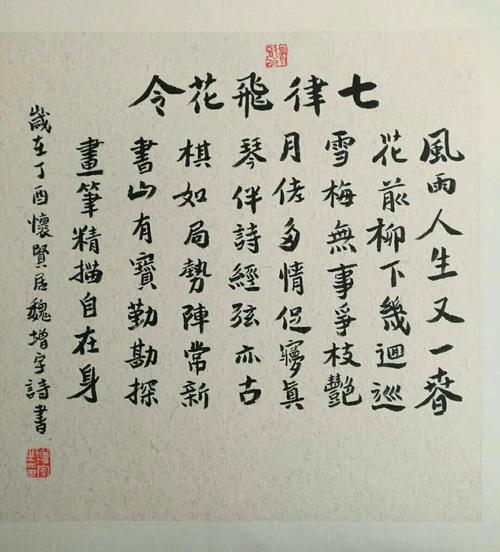 七律飛花令
風雨人生又一春
花前柳下幾迴巡
雪梅無事爭枝艷
月佬多情促夢真
琴伴詩經弦亦古
棋如局勢陣常新
書山有寶勤勘探
畫筆精描自在身
歲在丁酉懷賢居魏增字詩書